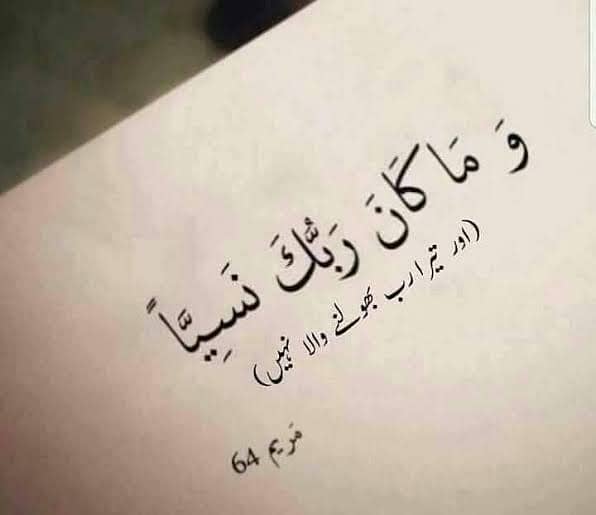 وَ مَا كَانَ رَبُّكَ نَسِيًّا
(اور تیرا رب بھولنے والا نہیں)
مَریم 64